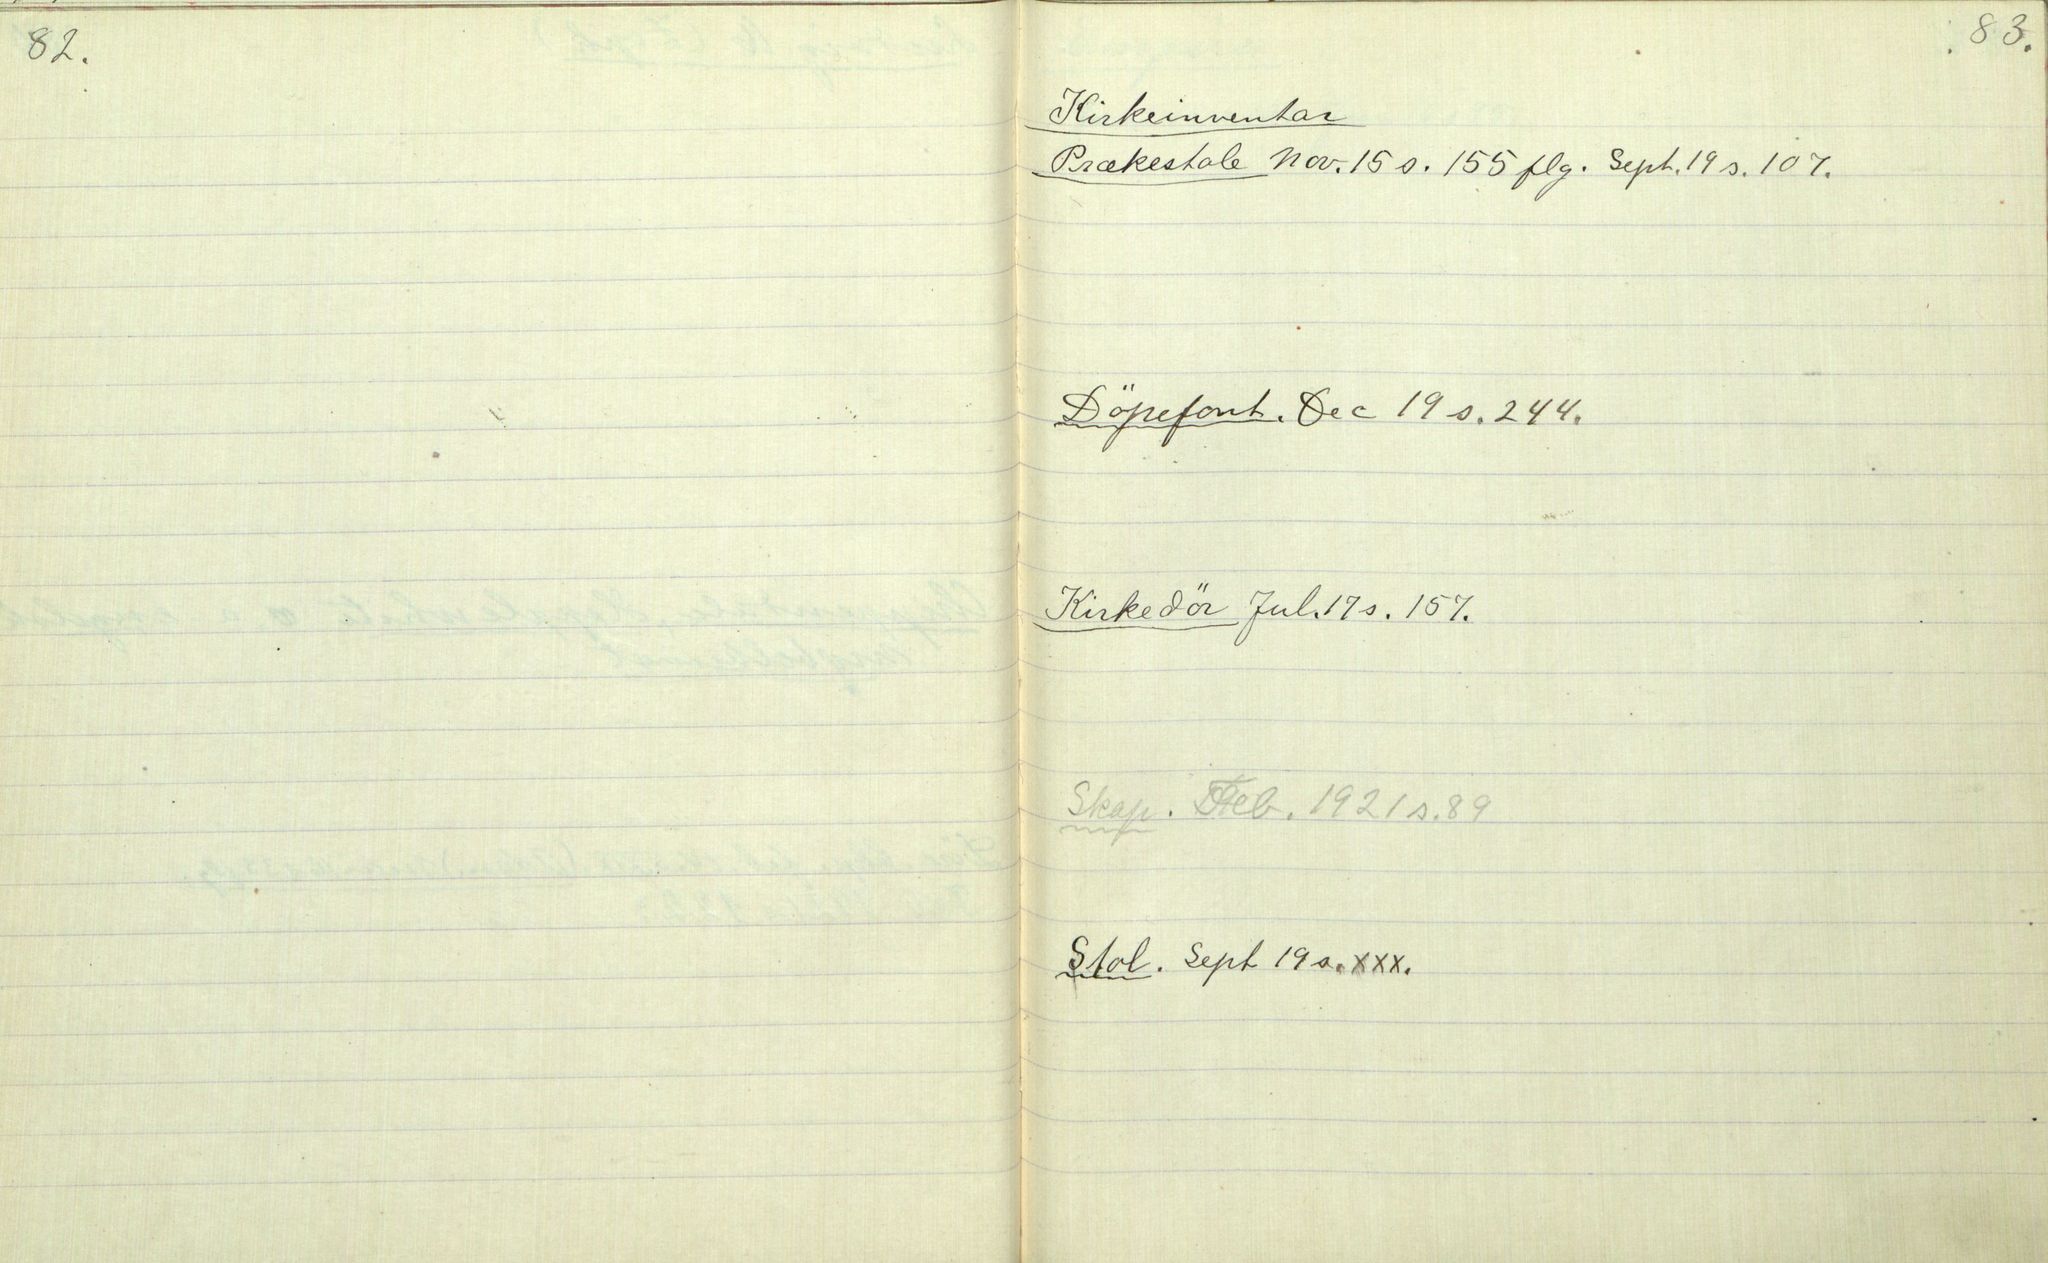 82.
83.
Kirkeinventar
Prækestole Nov. 15 s. 155 flg. Sept. 19 s. 107.
Döpefont. Dec 19 s. 244.
Kirkedör Jul. 17 s. 157.
Skap. Feb. 1921 s. 89
Stol. Sept 19 s. XXX.